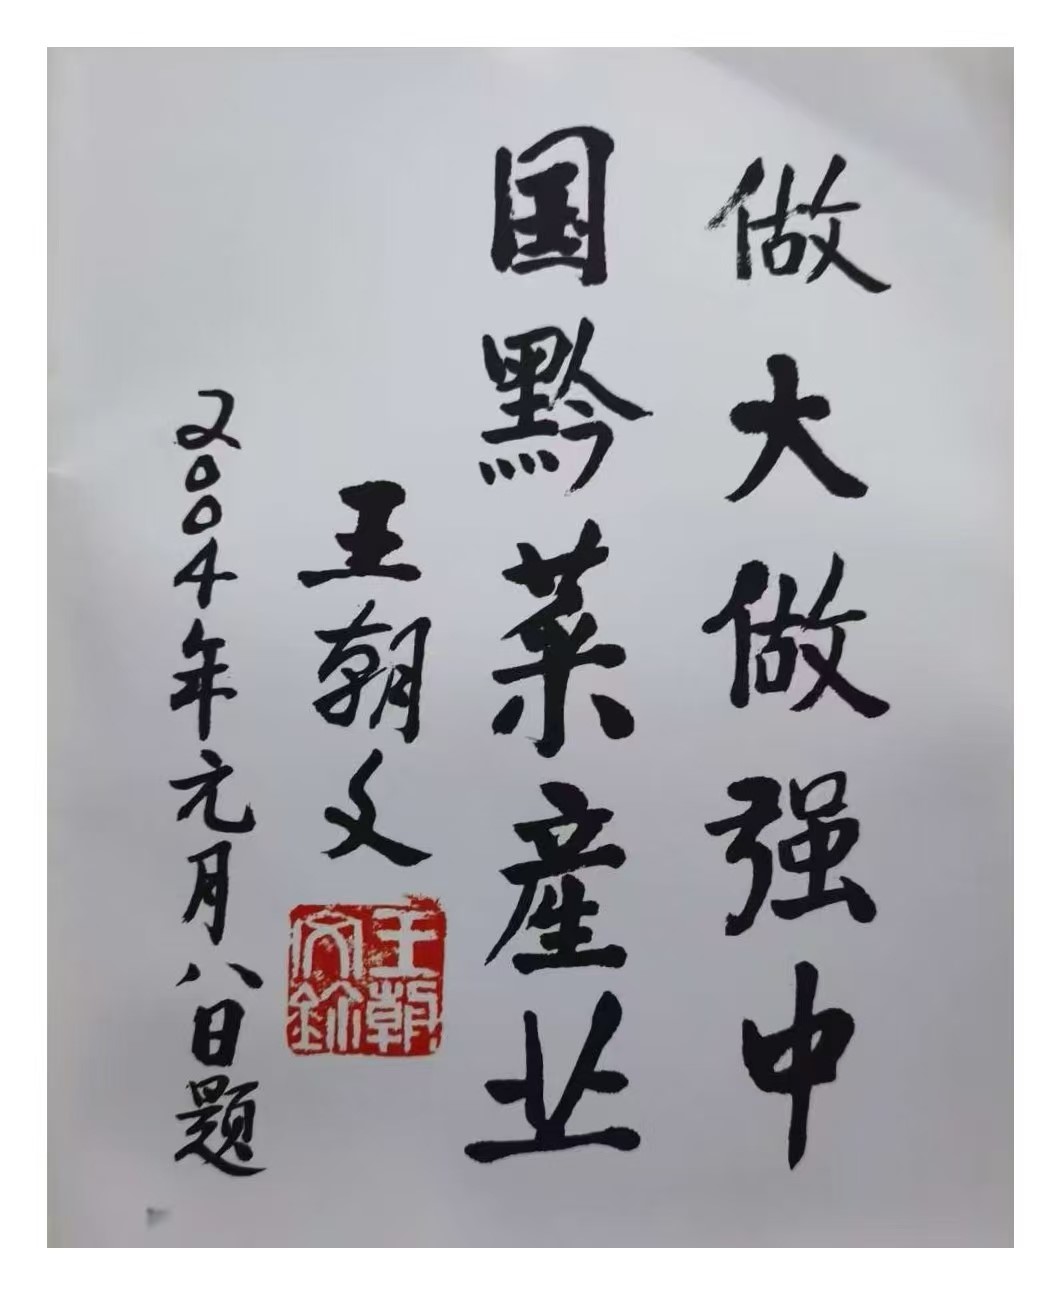 做大做强中
国黔菜産业
王朝文
王朝文鈢
2004年元月八日题